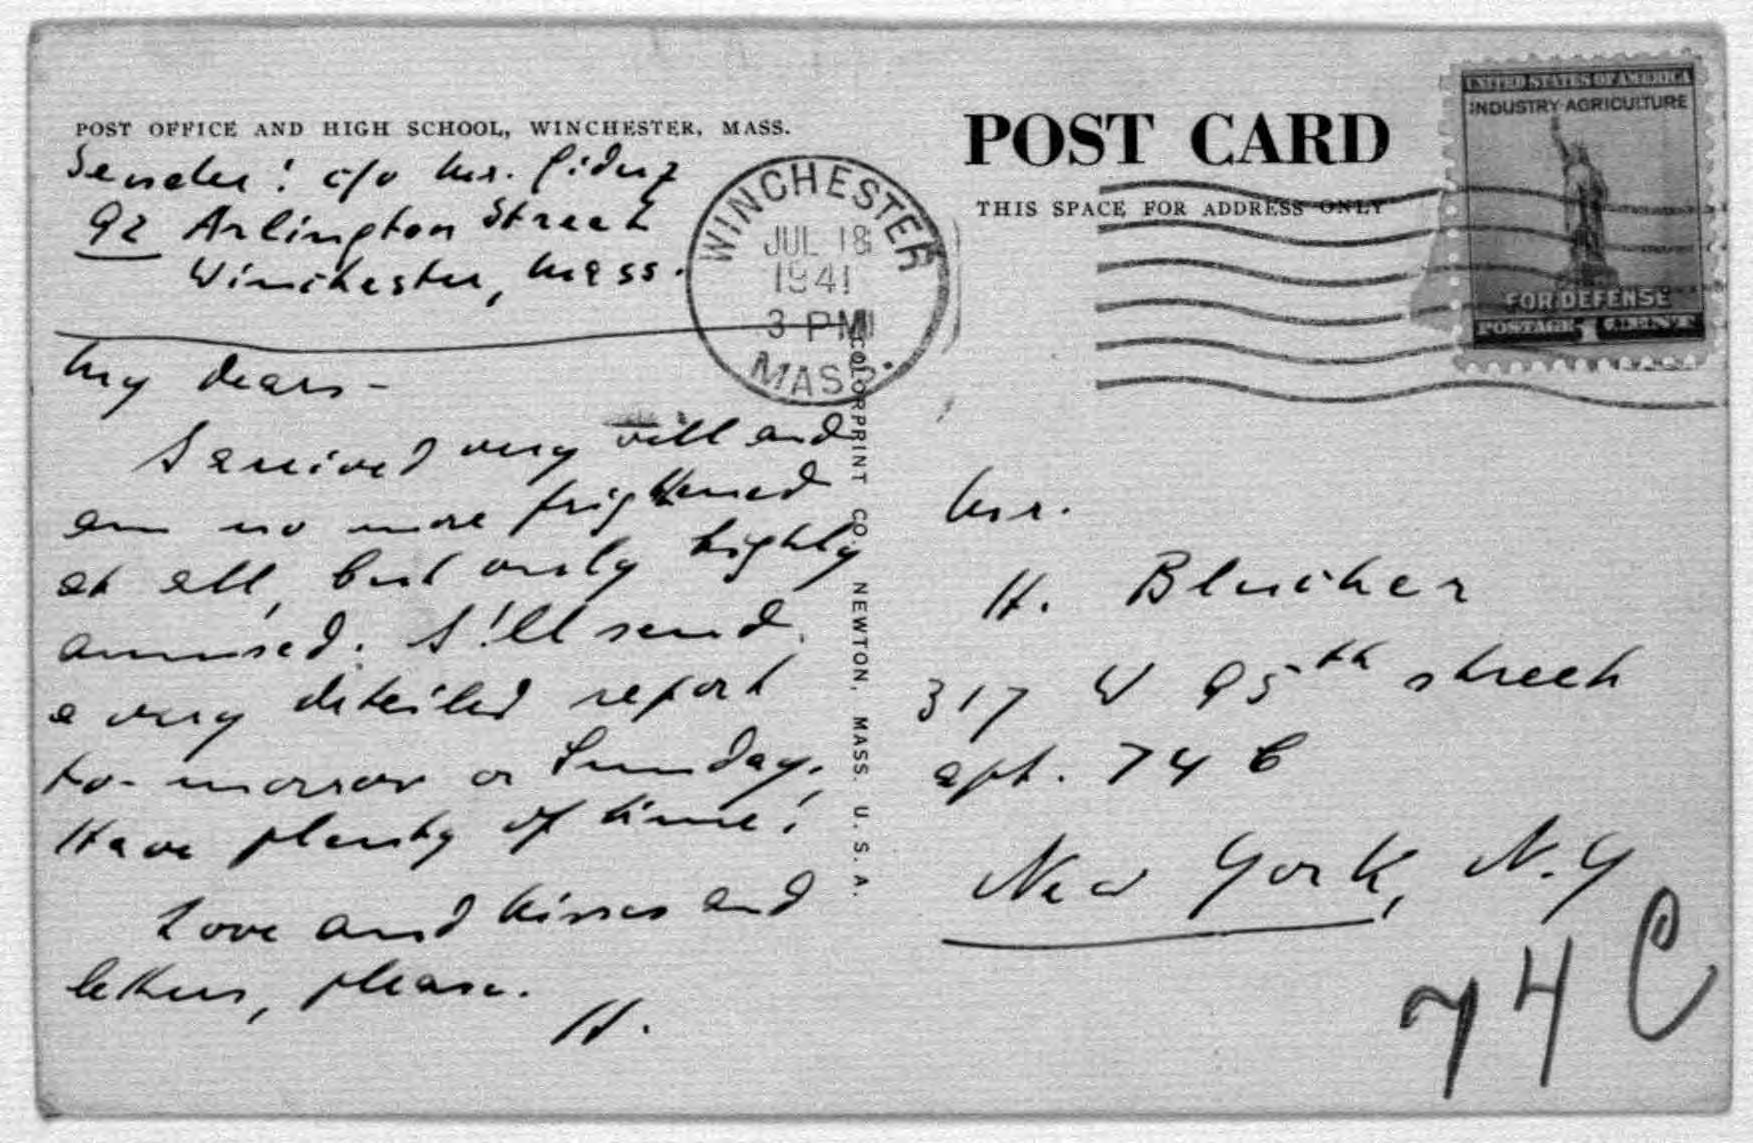 POST OFFICE AND HIGH SCHOOL, WINCHESTER, MASS.
Sender: c/o Mrs. Giduz
92 Arlington Street
Winchester, Mass.
My dears -
I arrived very well and
am no more frightened
at all, but only highly
amused. I'll send
a very detailed report
to-morrow or Sunday.
Have plenty of time!
Love and kisses and
letters, please.
H.
WINCHESTER
JUL 18
1941
3 PM
MASS.
COLORPRINT CO. NEWTON, MASS. U. S. A.
POST CARD
THIS SPACE FOR ADDRESS ONLY
UNITED STATES OF AMERICA
INDUSTRY AGRICULTURE
FOR DEFENSE
POSTAGE 1 CENT
Mr.
H. Bluecher
317 W 95th street
apt. 74 C
New York, N.Y
74 C